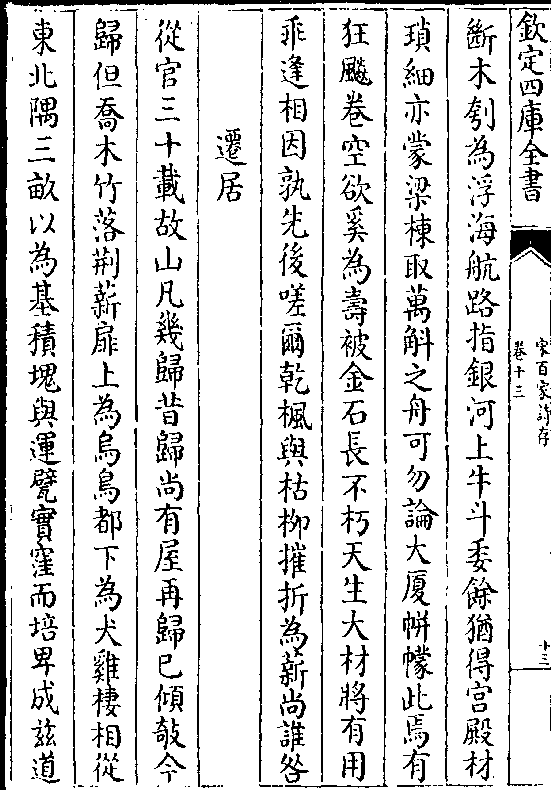 欽定四庫全書
宋百家詩存
卷十三
十三
斷木刳為浮海航路指銀河上牛斗委餘猶得宫殿材
瑣細亦蒙梁棟取萬斛之舟可勿論大厦帡幪此焉有
狂飈卷空欲奚為壽被金石長不朽天生大材將有用
乖逢相因孰先後嗟爾乾楓與枯栁摧折為薪尚誰咎
遷居
從官三十載故山凡幾歸昔歸尚有屋再歸已傾欹今
歸但喬木竹落荆薪扉上為烏鳥都下為犬雞棲相從
東北隅三畝以為基積塊與運甓實窪而培卑成兹道